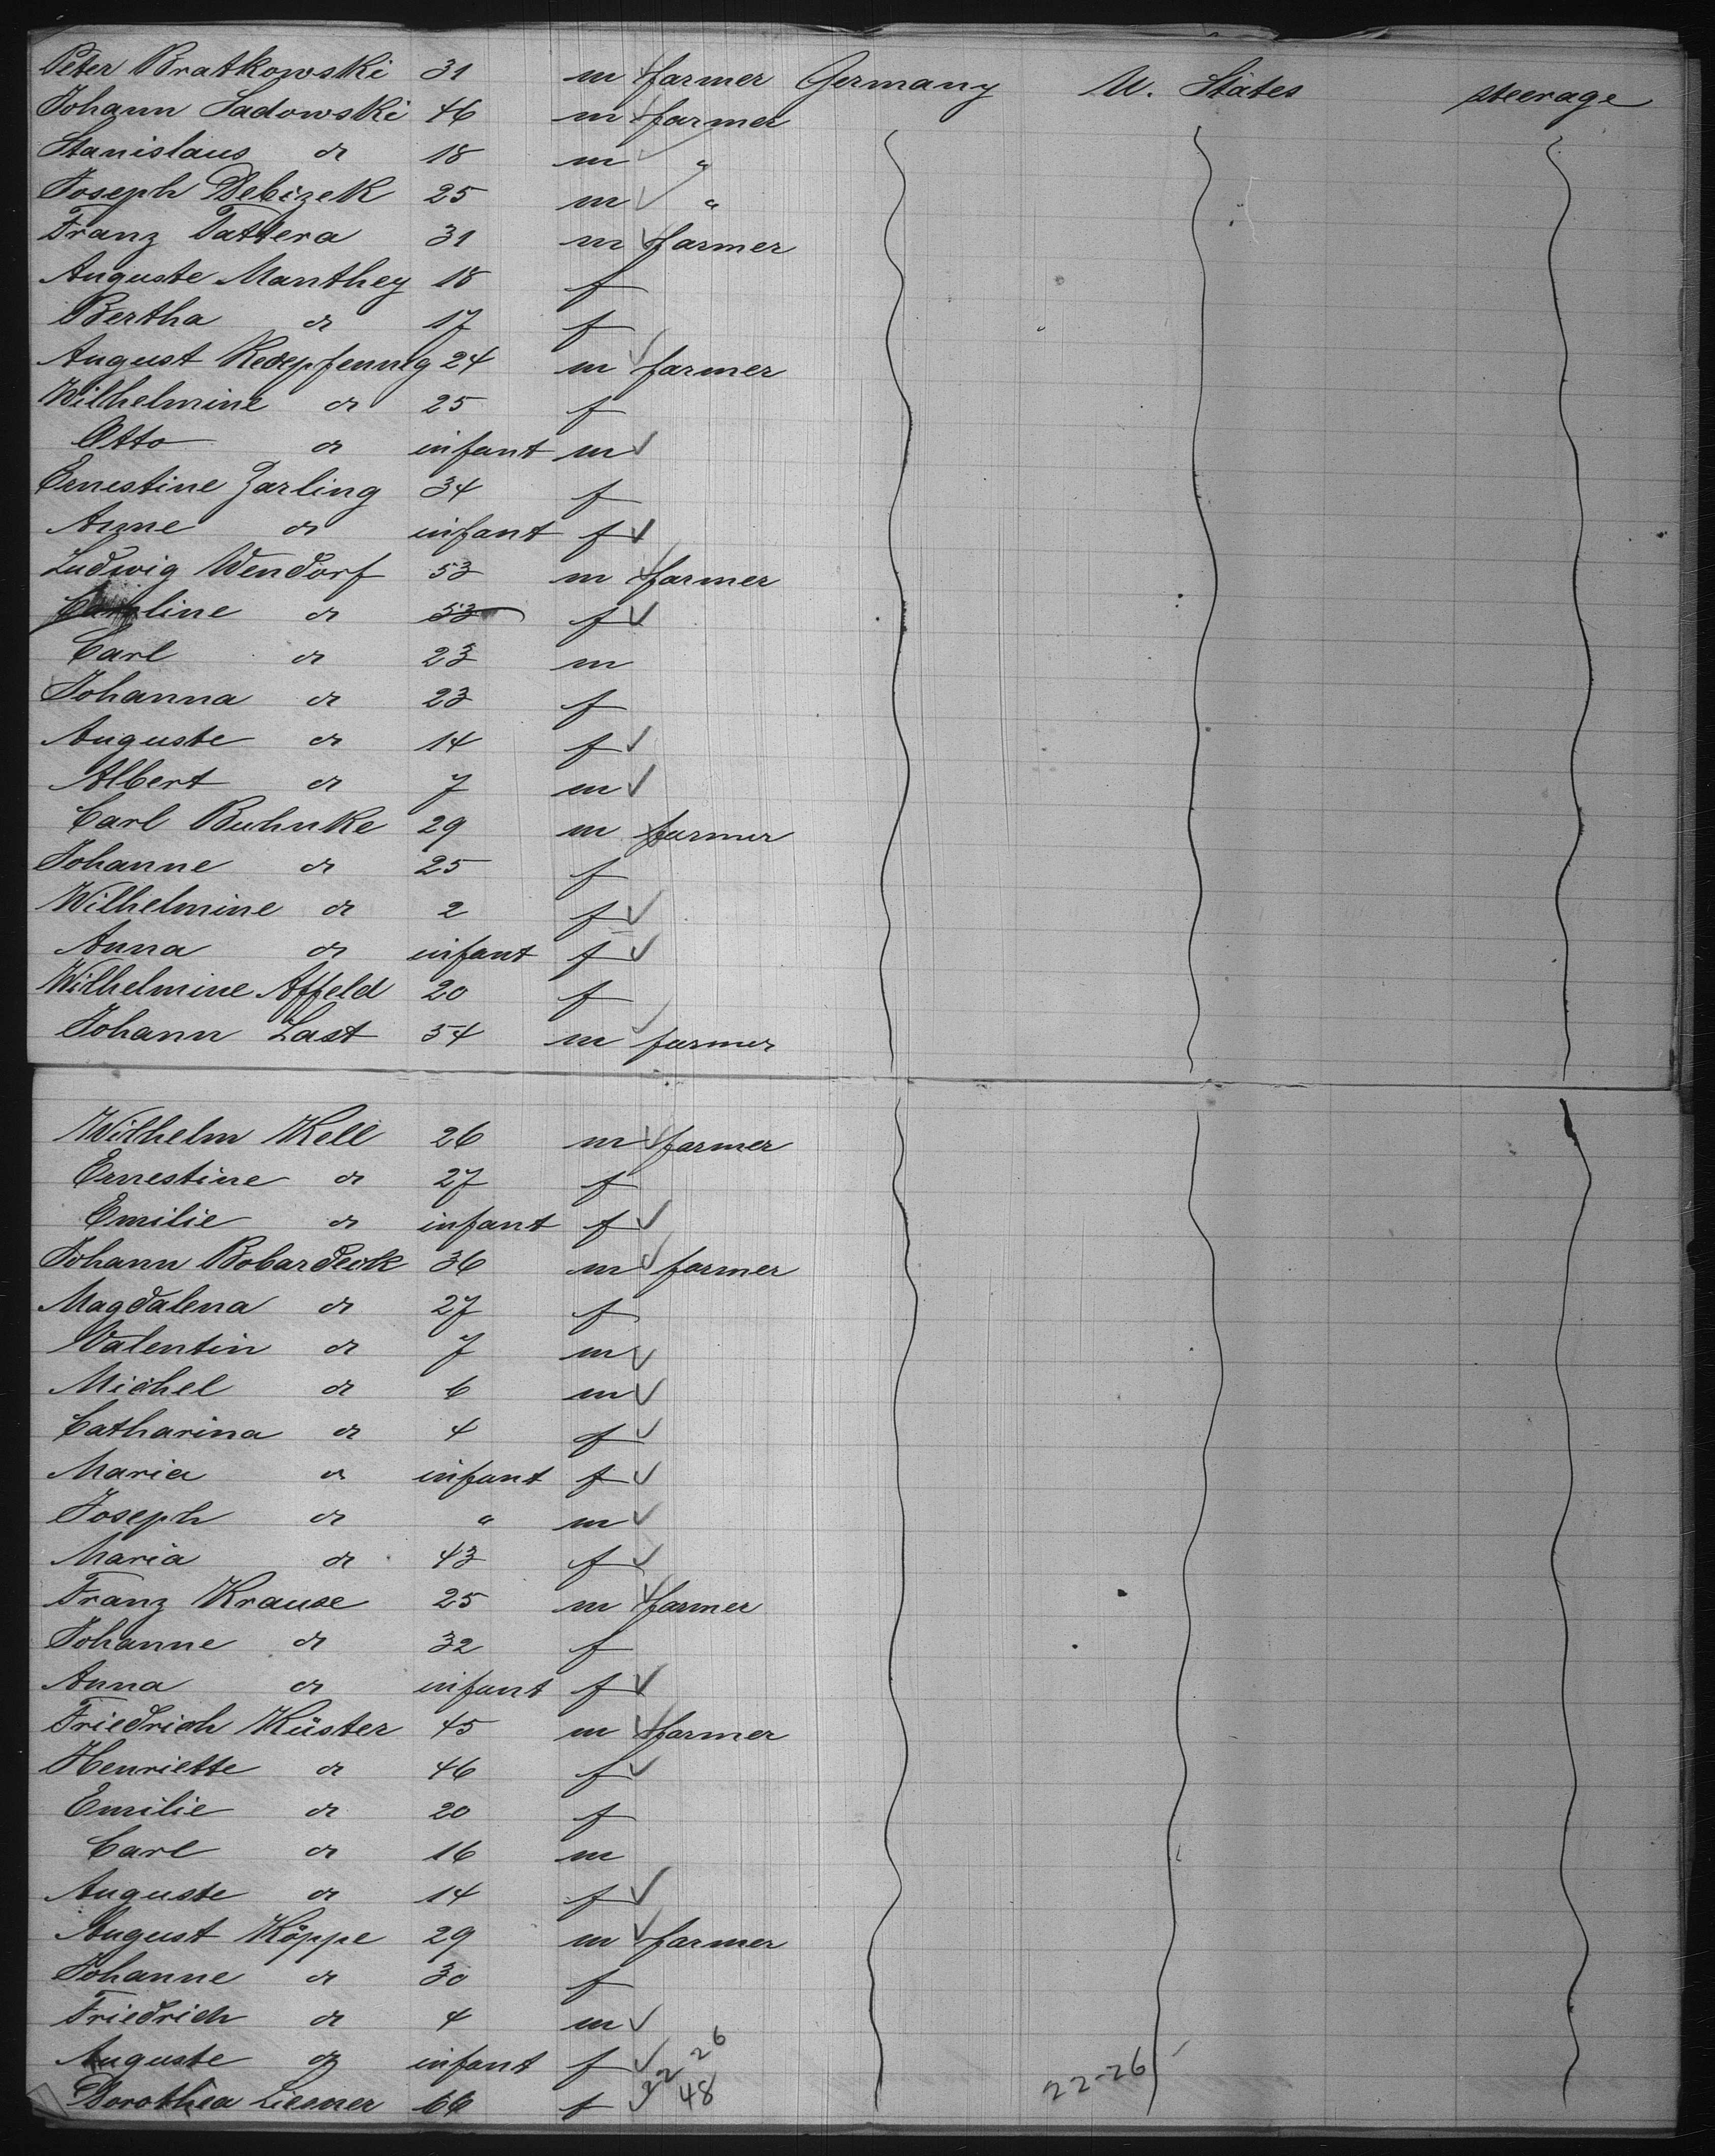 Peter Bratkowski 31 m farmer Germany U. States steerage
Johann Sadowski 46 m farmer
Stanislaus do 18 m "
Joseph Debizek 25 m "
Franz Tattera 31 m farmer
Auguste Manthey 18 f
Bertha do 17 f
August Redepfennig 24 m farmer
Wilhelmine do 25 f
Otto do infant m
Ernestine Zarling 34 f
Anne do infant f
Ludwig Wendorf 53 m farmer
Caroline do 53 f
Carl do 23 m
Johanna do 23 f
Auguste do 14 f
Albert do 7 m
Carl Buhnke 29 m farmer
Johanne do 25 f
Wilhelmine do 2 f
Anna do infant f
Wilhelmine Affeld 20 f
Johann Last 54 m farmer
Wilhelm Kell 26 m farmer
Ernestine do 27 f
Emilie do infant f
Johann Bobardeck 36 m farmer
Magdalena do 27 f
Valentin do 7 m
Michel do 6 m
Catharina do 4 f
Maria do infant f
Joseph do " m
Maria do 43 f
Franz Krause 25 m farmer
Johanne do 32 f
Anna do infant f
Friedrich Küster 45 m farmer
Henriette do 46 f
Emilie do 20 f
Carl do 16 m
Auguste do 14 f
August Köppe 29 m farmer
Johanne do 30 f
Friedrich do 4 m
Auguste do infant f 22 26
Dorothea Liesner 66 f 48 22-26